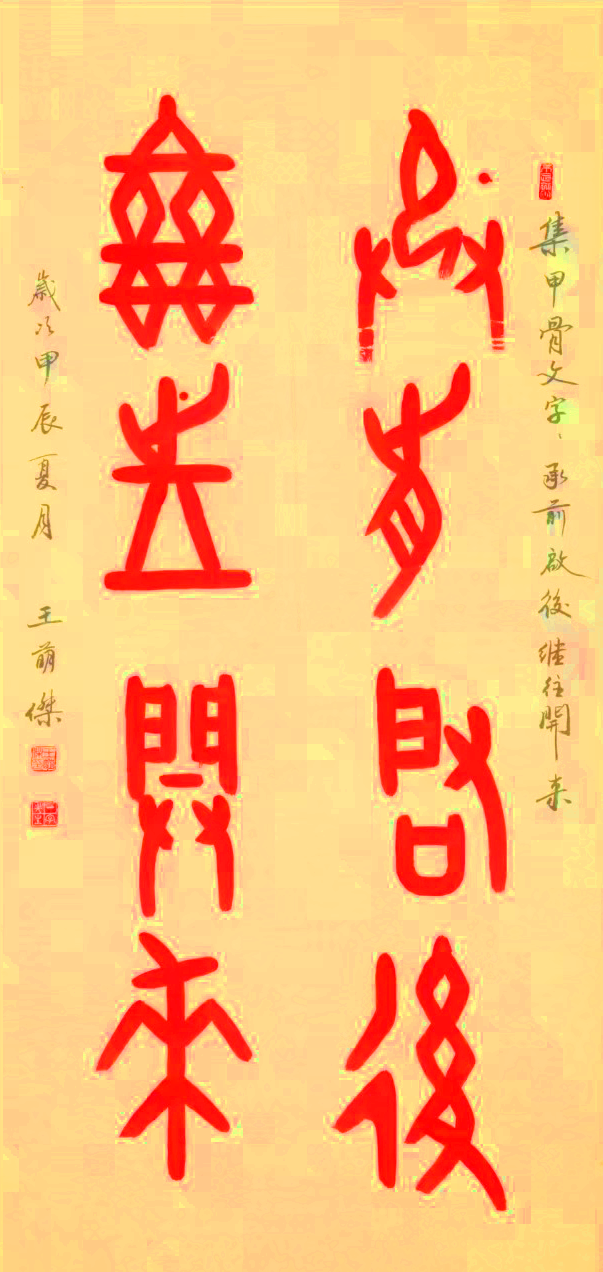 集甲骨文字、承前啟後継往開来
承前啟後
繼往開來
歲次甲辰夏月 王萌傑